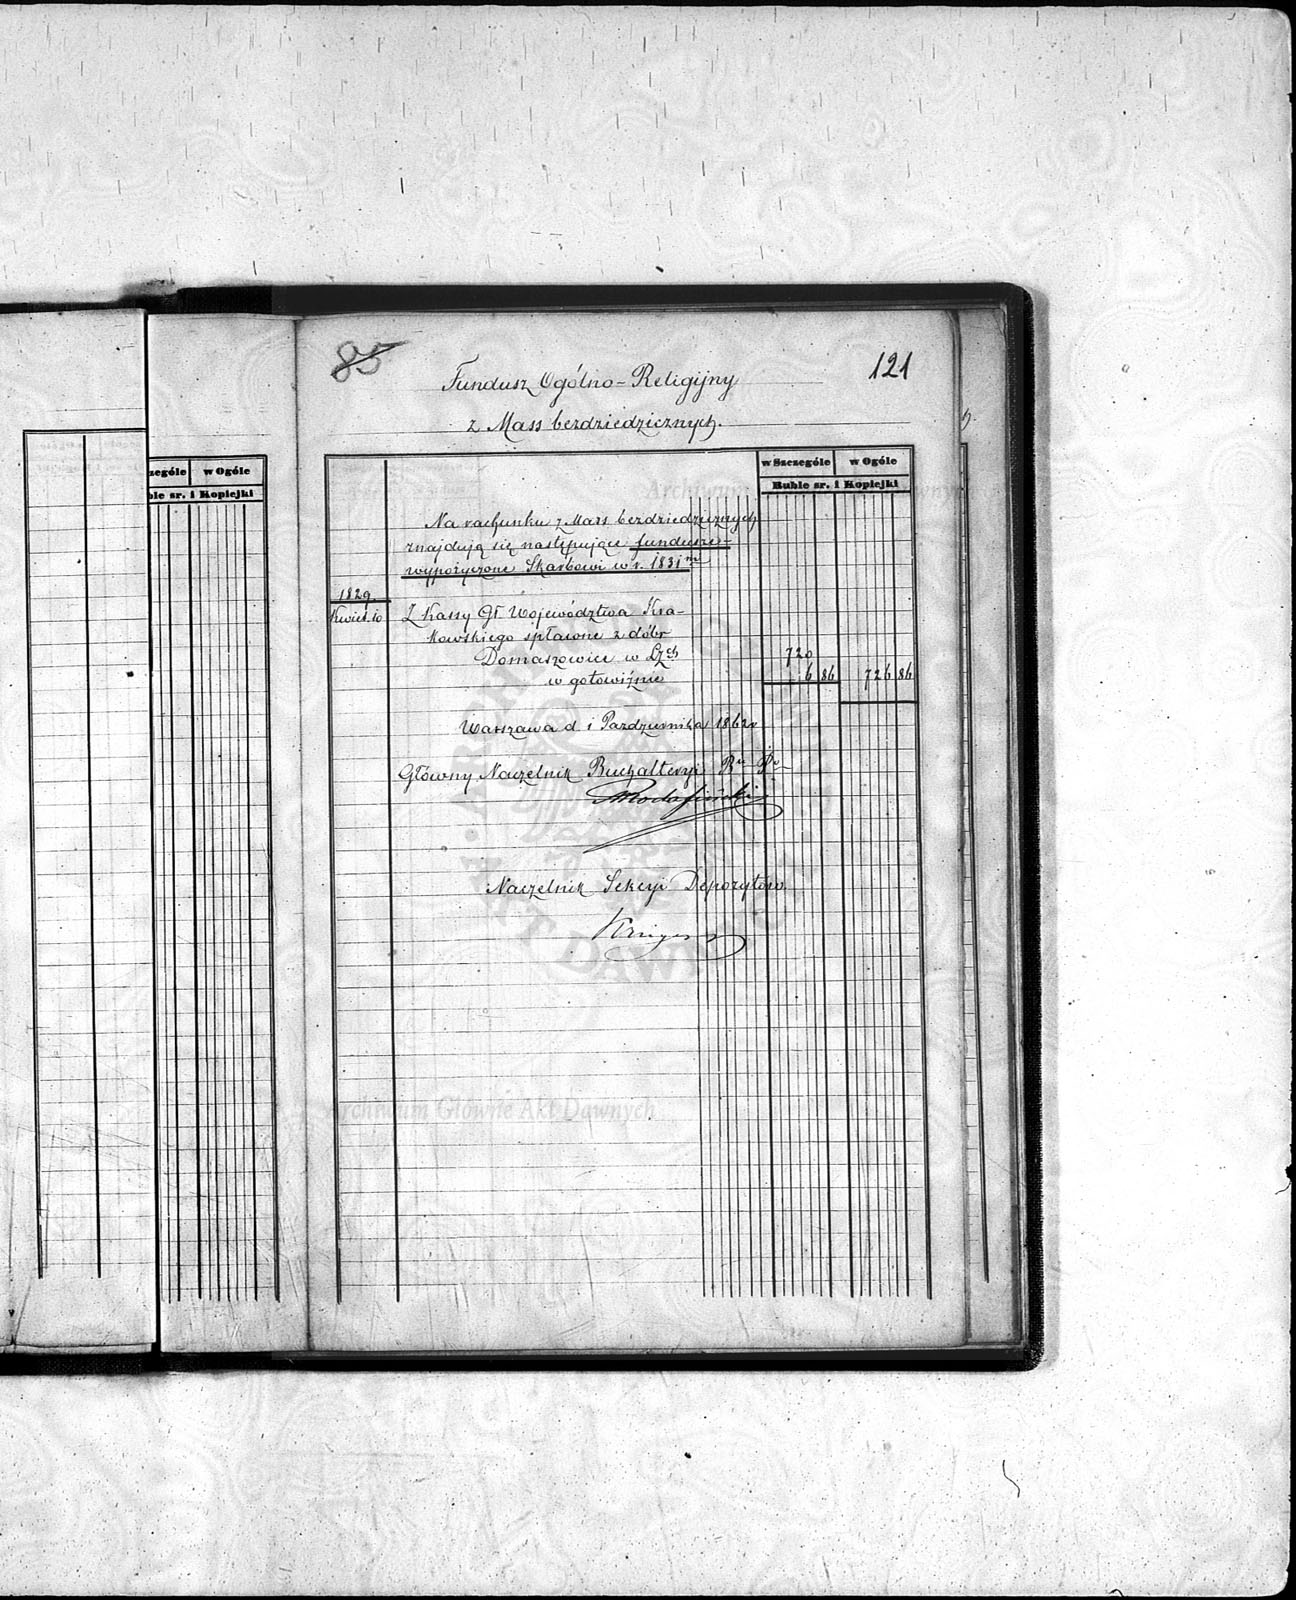 85
121
Fundusz Ogólno-Religijny
z Mass bezdziedzicznych.
zególe w Ogóle
ble sr. i Kopiejki
w Szczególe w Ogóle
Ruble sr. i Kopiejki
Na rachunku z Mass bezdziedzicznych
znajdują się następujące fundusze
wypożyczone Skarbowi w r. 1831m
1829.
Kwiet. 10 Z Kassy Gł. Województwa Kra-
kowskiego spłacone z dóbr
Domaszowice w Lzch 720
w gotowiźnie 6 86 726 86
Warszawa d. 1 Października 1862 r
Główny Naczelnik Buchalteryi
Naczelnik Sekcyi Depozytów
Archiwum Główne Akt Dawnych